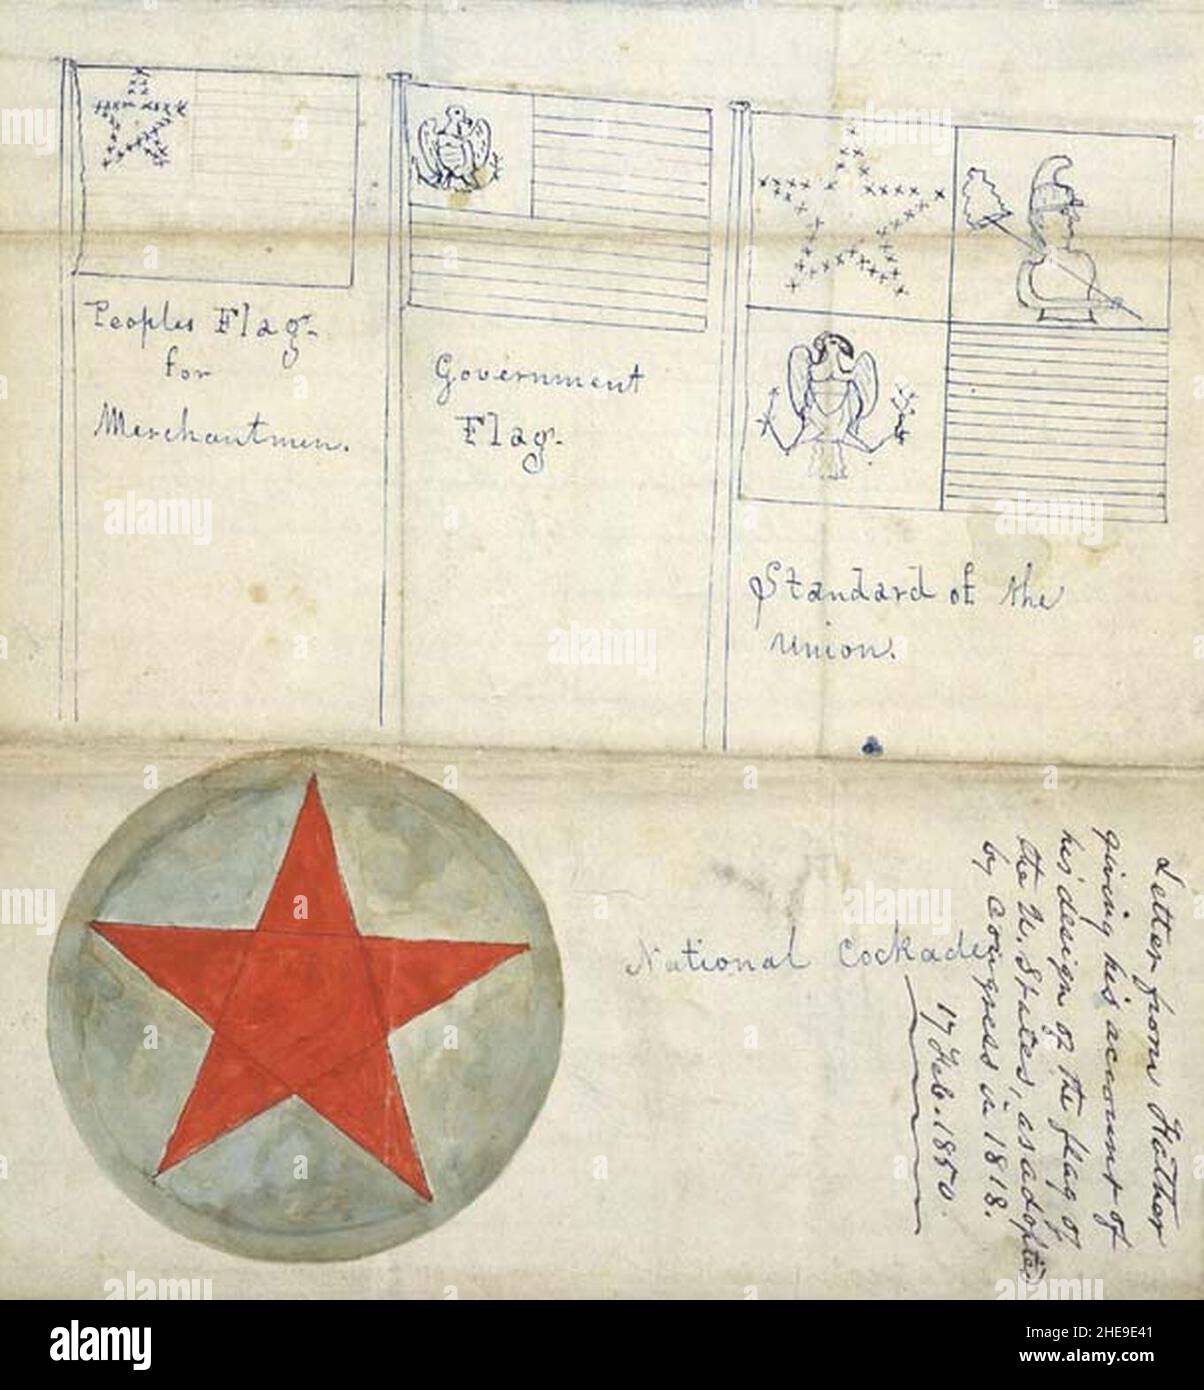 Peoples Flag-
for
Merchantmen.
Government
Flag.
Standard of the
Union.
National Cockade
Letter from Father
giving his account of
his design of the flag of
the U. States, as adopted
by Congress in 1818.
17 Feb. 1850.
alamy
Image ID: 2HE9E41
www.alamy.com